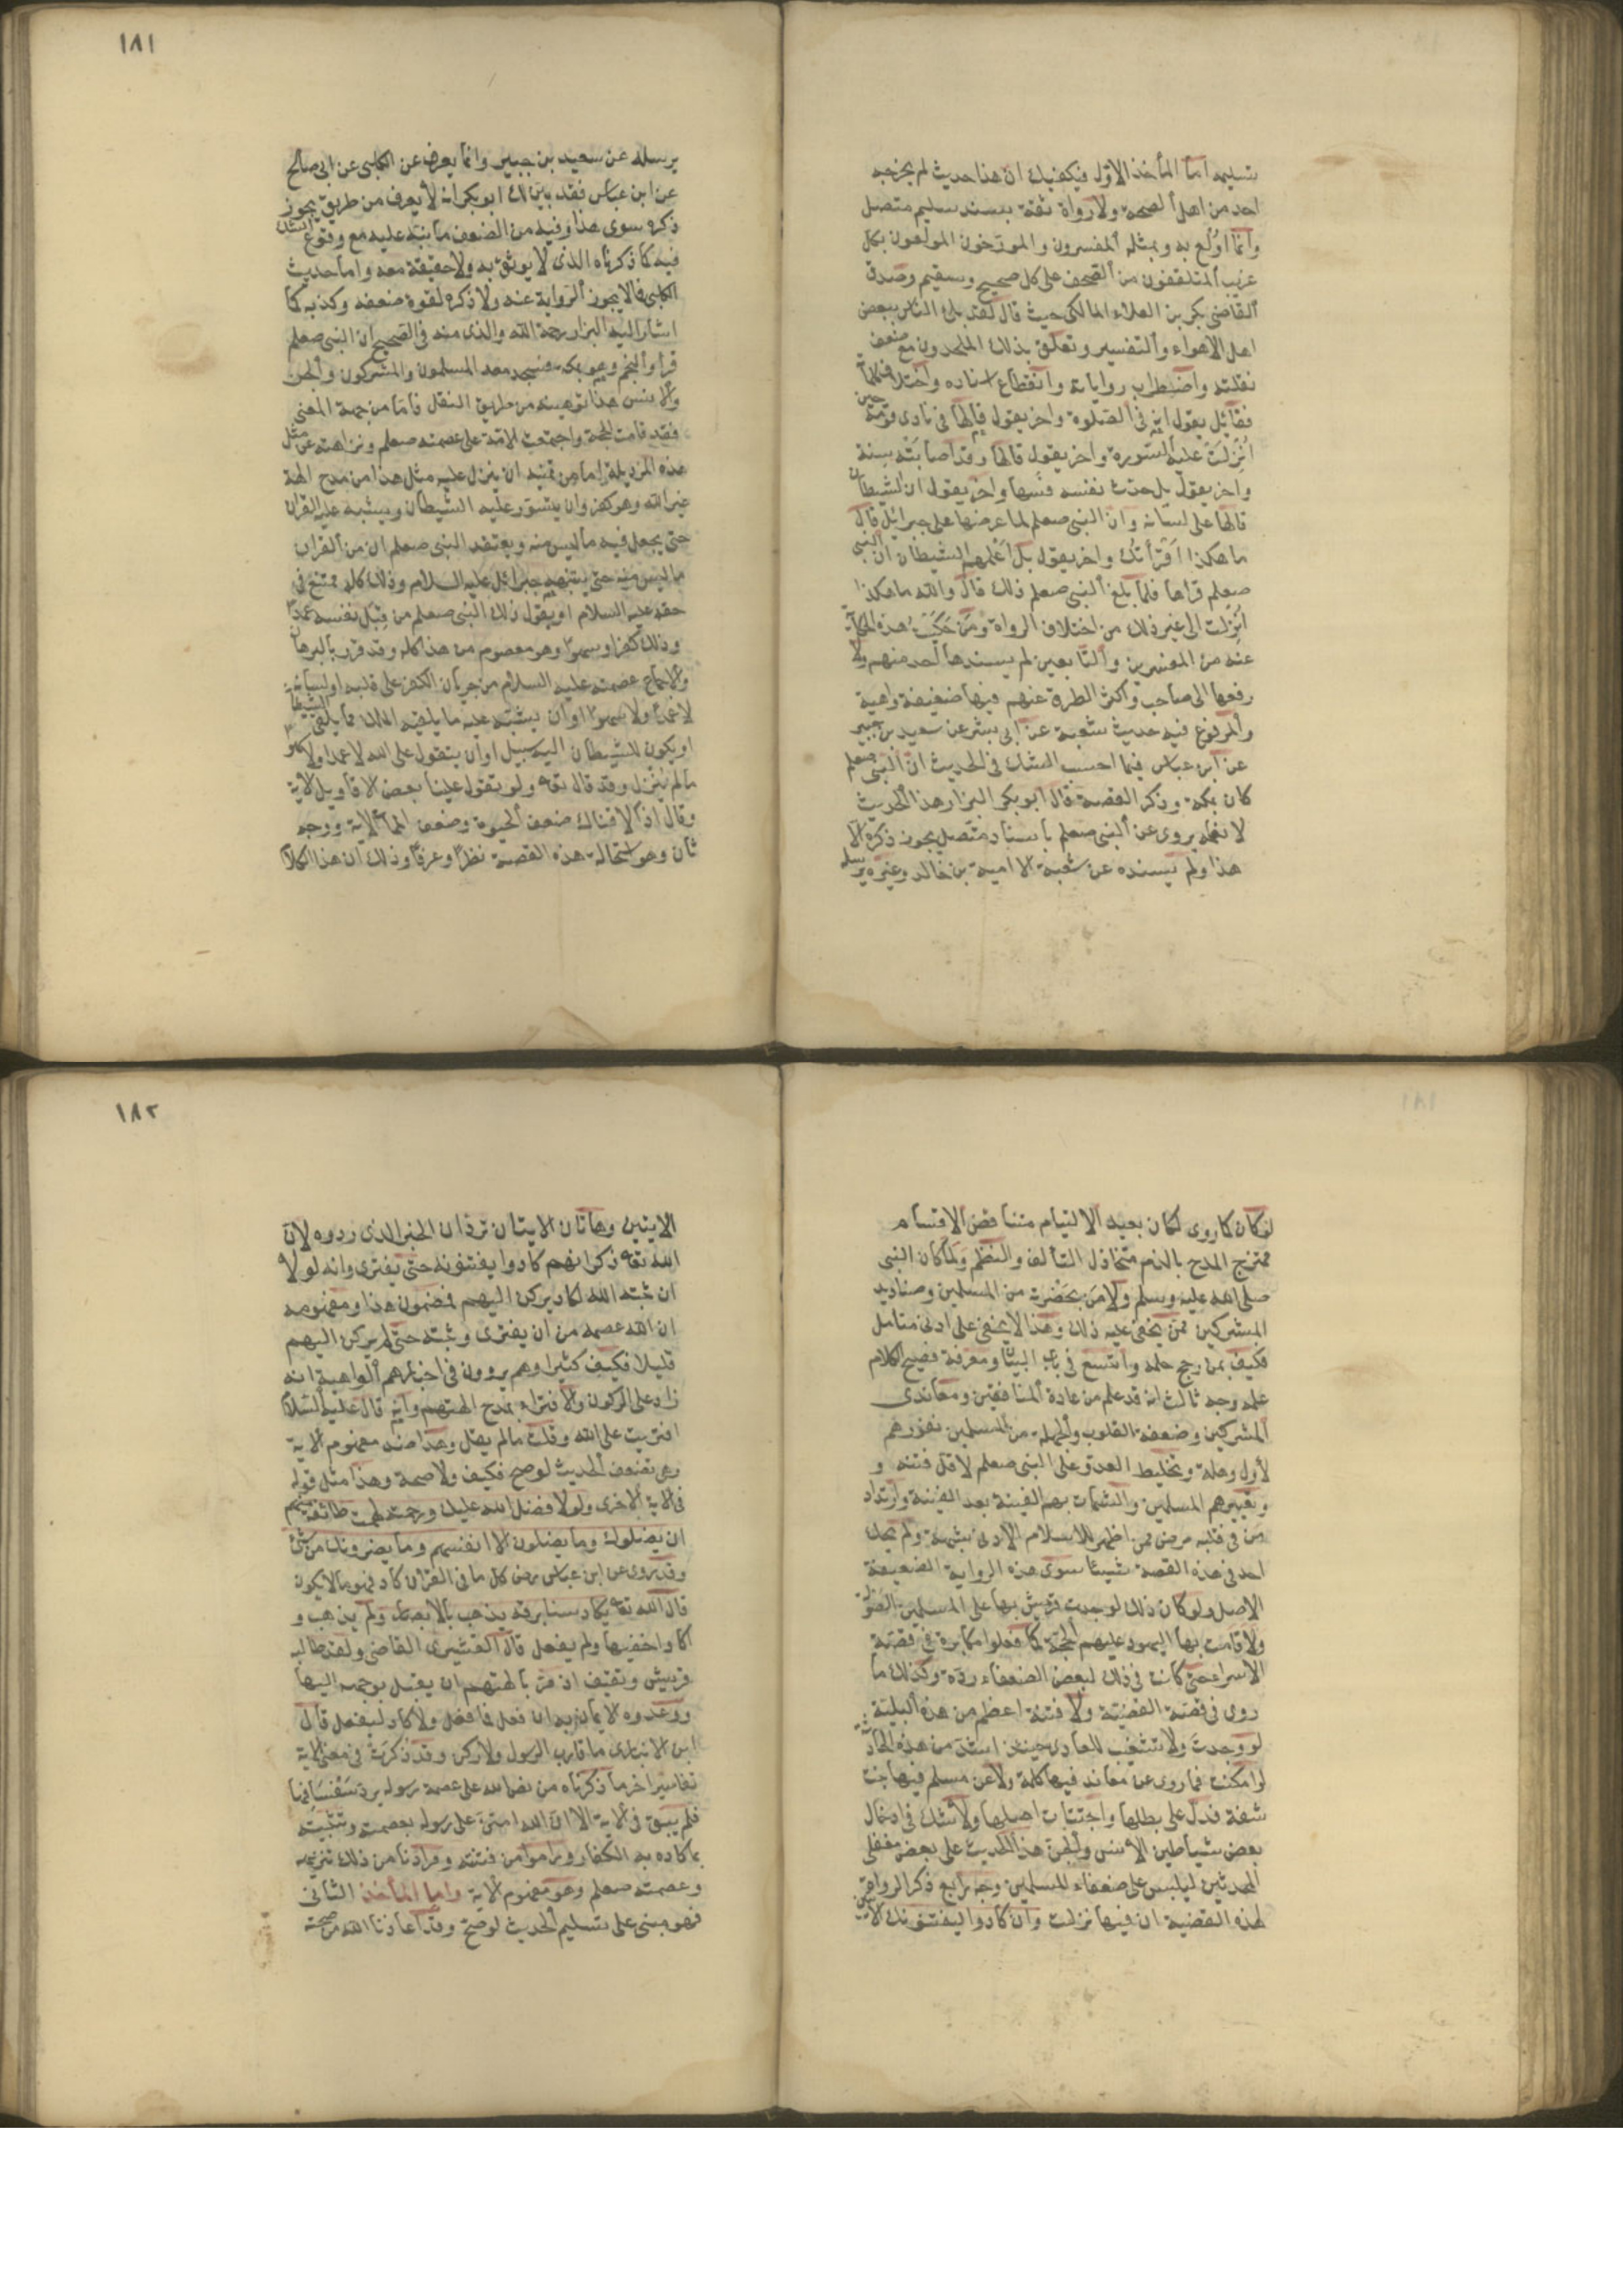 بتسليمه اما المأخذ الاول فيكفيك ان هذا حديث لم يخرجه
احد من اهل الصحة ولا رواة ثقة بسند سليم متصل
وانما اولع به وبمثله المفسرون والمورخون المولعون بكل
غريب المتلقفون من الصحف على كل صحيح وسقيم وصدق
القاضي بكر بن العلاء المالكي حيث قال لقد بلى الناس ببعض
اهل الاهواء والتفسير وتعلق بذلك الملحدون مع ضعف
نقلته واضطراب رواياته وانقطاع اسناده واختلاف كلماته
فقائل يقول انه في الصلوة واخر يقول قالها في نادى قومه حين
انزلت عليه السورة واخر يقول قالها وقد اصابته سنة
واخر يقول بل حدث نفسه فسها واخر يقول ان الشيطان
قالها على لسانه وان النبي صعلم لما عرضها على جبرائل قال
ما هكذا اقرأتك واخر يقول بل اعلمهم الشيطان ان النبي
صعلم قراها فلما بلغ النبي صعلم ذلك قال والله ما هكذا
انزلت الى غير ذلك من اختلاف الرواة ومن حكيت هذه الحكاية
عنه من المفسرين والتابعين لم يسندها احد منهم ولا
رفعها الى صاحب واكثر الطرق عنهم فيها ضعيفة واهية
والمرفوع فيه حديث شعبة عن ابى بشر عن سعيد بن جبير
عن ابن عباس فيما احسب الشك في الحديث ان النبي صعلم
كان بمكة وذكر القصة قال ابو بكر البزار هذا الحديث
لا نعلمه يروى عن النبي صعلم باسناد متصل يجوز ذكره الا
هذا ولم يسنده عن شعبة الا امية بن خالد وغيره يرسله
١٨١
يرسله عن سعيد بن جبير وانما يعرف عن الكلبى عن ابى صالح
عن ابن عباس فقد بين لك ابو بكر انه لا يعرف من طريق يجوز
ذكره سوى هذا وفيه من الضعف ما نبه عليه مع وقوع الشك
فيه كما ذكرناه الذى لا يوثق به ولا حقيقة معه واما حديث
الكلبى فما لا يجوز الرواية عنه ولا ذكره لقوة ضعفه وكذبه كما
اشار اليه البزار رحمة الله والذى منه في الصحيح ان النبي صعلم
قرا والنجم وهو بمكة فسجد معه المسلمون والمشركون والجن
والانس هذا توهينه من طريق النقل فاما من جهة المعنى
فقد قامت الحجة واجتمعت الامة على عصمته صعلم ونزاهته عن مثل
هذه الرذيلة اما من تمنيه ان ينزل عليه مثل هذا من مدح الهة
غير الله وهو كفر وان يتسور عليه الشيطان ويشبه عليه القران
حتى يجعل فيه ما ليس منه ويعتقد النبي صعلم ان من القران
ما ليس منه حتى ينبهه جبرائل عليه السلام وذلك كله ممتنع في
حقه عليه السلام او يقول ذلك النبي صعلم من قبل نفسه عمدا
وذلك كفر او سهوا وهو معصوم من هذا كله وقد قرر بالبرهان
والاجماع عصمته عليه السلام من جريان الكفر على قلبه او لسانه
لا عمدا ولا سهوا او ان يشتبه عليه ما يلقيه الملك مما يلقى الشيطان
او يكون للشيطان اليه سبيل او ان يتقول على الله لا عمدا ولا سهوا
ما لم ينزل وقد قال تقه ولو تقول علينا بعض الاقاويل الآية
وقال اذا لاذقناك ضعف الحيوة وضعف المماة الاية ووجه
ثان وهو استحالة هذه القصة نظرا وعرفا وذلك ان هذا الكلام
لو كان كما روى لكان بعيد الالتيام متناقض الاقسام
ممتزج المدح بالذم متخاذل التألف والنظم ولما كان النبي
صلى الله عليه وسلم ولا من بحضرته من المسلمين وصناديد
المشركين ممن يخفى عليه ذلك وهذا لا يخفى على ادنى متامل
فكيف بمن رجح حلمه واتسع في باب البيان ومعرفة فصيح الكلام
علمه وجه ثالث انه قد علم من عادة المنافقين ومعاندى
المشركين وضعفة القلوب والجهلة من المسلمين نفورهم
لاول وهلة وتخليط العدو على النبي صعلم لاقل فتنه و
وتعييرهم المسلمين والشمات بهم الفينة بعد الفينة وارتداد
من في قلبه مرض ممن اظهر الاسلام لادنى شبهة ولم يحك
احد في هذه القصة شيئا سوى هذه الرواية الضعيفة
الاصل ولو كان ذلك لوجدت قريش بها على المسلمين الصولة
ولاقامت بها اليهود عليهم الحجة كما فعلوا مكابرة في قصة
الاسراء حتى كانت في ذلك لبعض الضعفاء ردة وكذلك ما
روى في قصة القضية ولا فتنة اعظم من هذه البلية
لو وجدت ولا تشغيب للمعادى حينئذ اشد من هذه الحادثة
لو امكنت فما روى عن معاند فيها كلمة ولا عن مسلم فيها بنت
شفة فدل على بطلها واجتثاث اصلها ولا شك في ادخال
بعض شياطين الانس والجن هذا الحديث على بعض مغفلى
المحدثين ليلبس على ضعفاء المسلمين وجه رابع ذكر الرواة
لهذه القضية ان فيها نزلت وان كادوا ليفتنونك الايتين
١٨٢
الايتين وهاتان الايتان تردان الخبر الذى رووه لان
الله تقه ذكر انهم كادوا يفتنونه حتى يفترى وانه لولا
ان ثبته الله لكاد يركن اليهم فمضمون هذا ومفهومه
ان الله عصمه من ان يفترى وثبته حتى لم يركن اليهم
قليلا فكيف كثيرا وهم يروون في اخبارهم الواهية انه
زاد على الركون والافتراء بمدح الهتهم وانه قال عليه السلام
افتريت على الله وقلت ما لم يقل وهذا ضد مفهوم الاية
وهى تضعف الحديث لو صح فكيف ولا صحة وهذا مثل قوله
في الاية الاخرى ولولا فضل الله عليك ورحمته لهمت طائفة منهم
ان يضلوك وما يضلون الا انفسهم وما يضرونك من شئ
وقد روى عن ابن عباس رض كل ما في القران كاد فهو ما لا يكون
قال الله تقه يكاد سنا برقه يذهب بالابصار ولم يذهب و
اكاد اخفيها ولم يفعل قال القشيرى القاضي ولقد طالبه
قريش وثقيف اذ مر بالهتهم ان يقبل بوجهه اليها
ووعدوه الايمان به ان فعل فما فعل ولا كاد ليفعل قال
ابن الانبارى ما قارب الرسول ولا ركن وقد ذكرت في معنى الاية
تفاسير اخر ما ذكرناه من نص الله على عصمة رسوله يرد سفسافها
فلم يبق في الاية الا ان الله امتن على رسوله بعصمته وتثبيته
بما كاده به الكفار وراموا من فتنته ومرادنا من ذلك تنزيهه
وعصمته صعلم وهو مفهوم الاية واما المأخذ الثانى
فهو مبنى على تسليم الحديث لو صح وقد اعاذنا الله من صحته